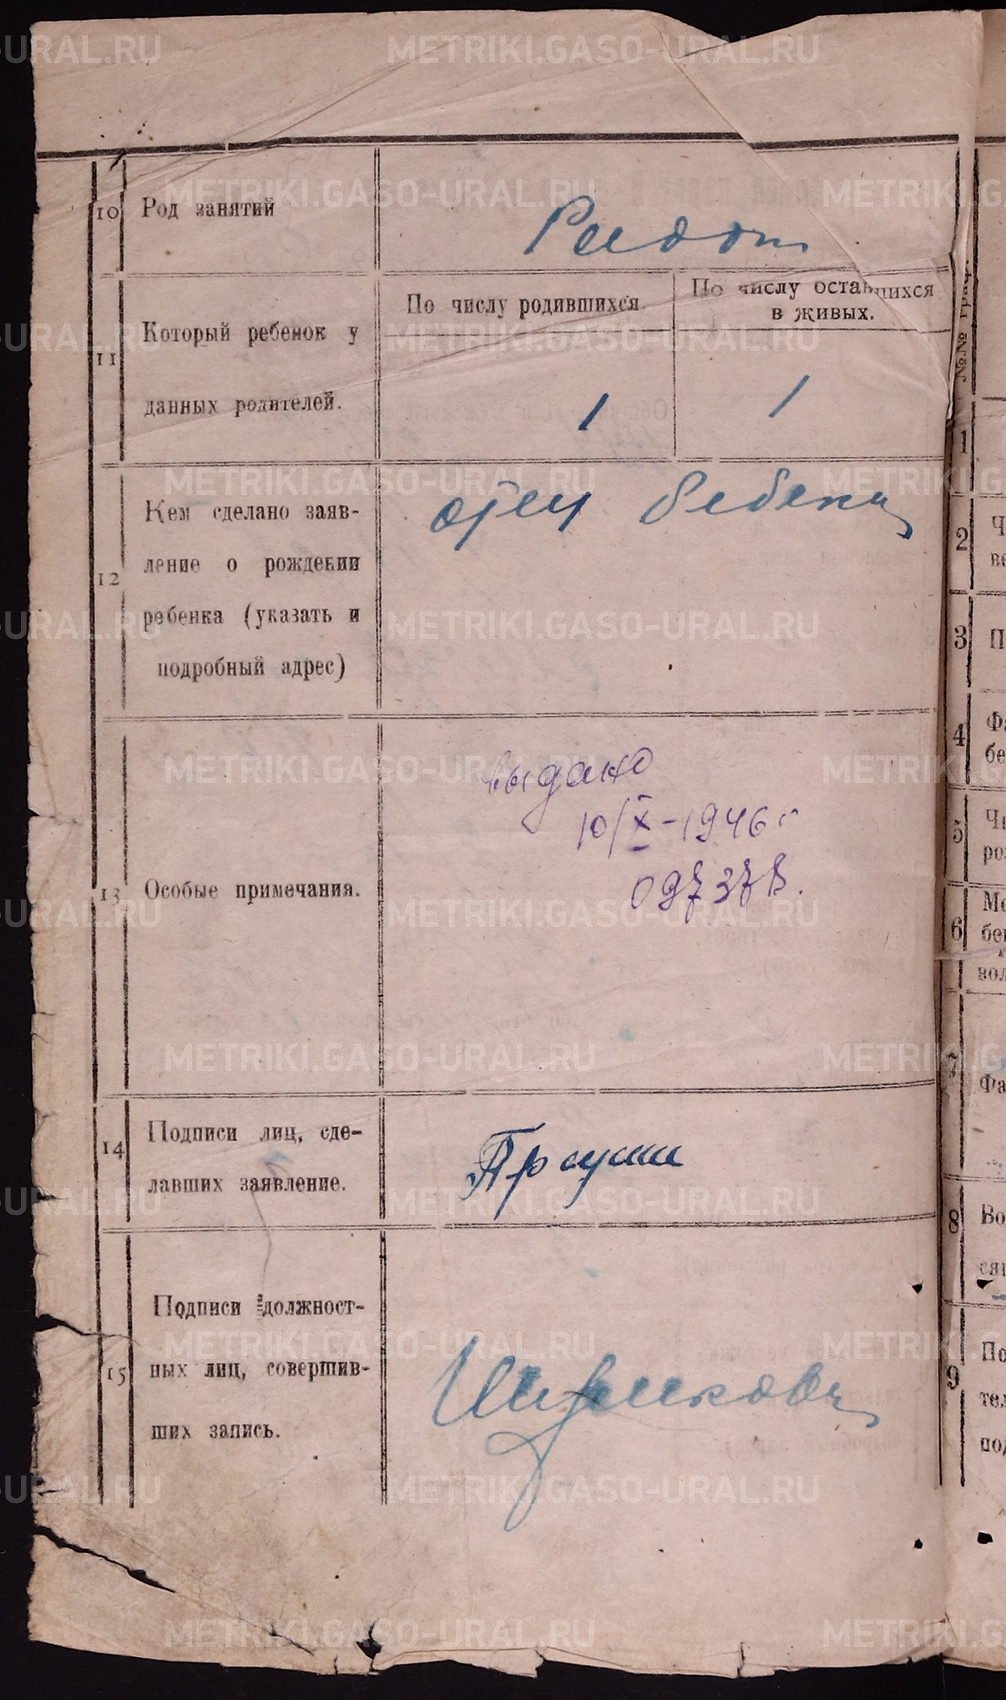 METRIKI.GASO-URAL.RU
10 Род занятий
11 Который ребенок у
данных родителей.
По числу родившихся
По числу оставшихся
в живых.
1
1
12 Кем сделано заяв-
ление о рождении
ребенка (указать и
подробный адрес)
отец
13 Особые примечания.
выдано
10/X-1946 г
14 Подписи лиц, сде-
лавших заявление.
15 Подписи должност-
ных лиц, совершив-
ших запись.
№№ граф
1
2 Ч
ве
3 П
4 Фа
бе
5 Чи
ро
6 Ме
бе
вол
7 Фа
8 Во
сят
9 По
тел
под